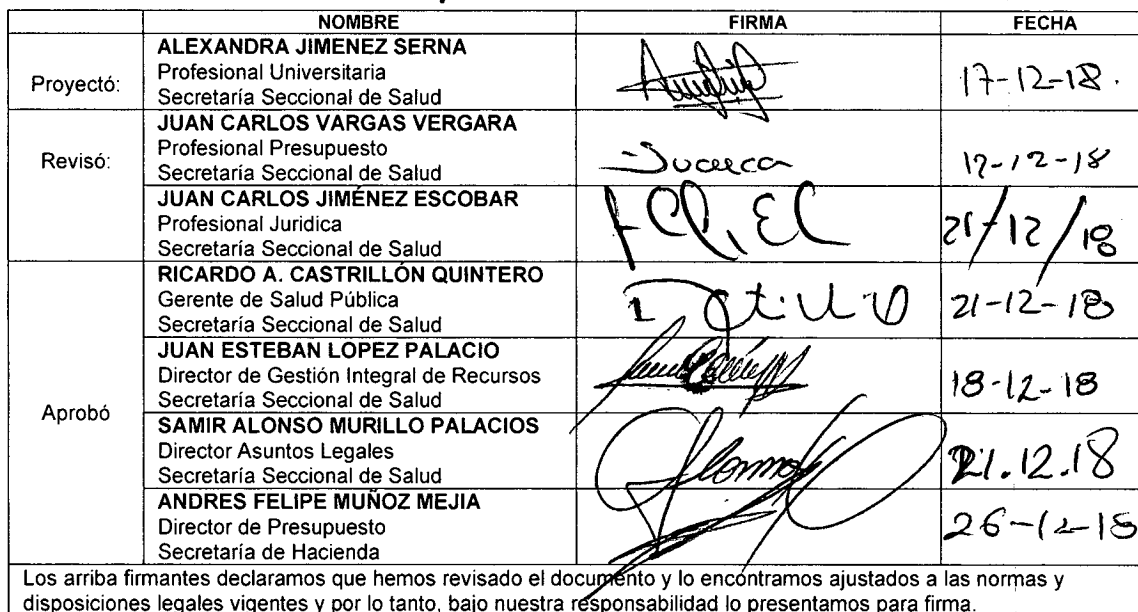 NOMBRE FIRMA FECHA
Proyectó:
ALEXANDRA JIMENEZ SERNA
Profesional Universitaria
Secretaría Seccional de Salud
17-12-18.
Revisó:
JUAN CARLOS VARGAS VERGARA
Profesional Presupuesto
Secretaría Seccional de Salud
17-12-18
JUAN CARLOS JIMÉNEZ ESCOBAR
Profesional Juridica
Secretaría Seccional de Salud
21/12/18
Aprobó
RICARDO A. CASTRILLÓN QUINTERO
Gerente de Salud Pública
Secretaría Seccional de Salud
21-12-18
JUAN ESTEBAN LOPEZ PALACIO
Director de Gestión Integral de Recursos
Secretaría Seccional de Salud
18-12-18
SAMIR ALONSO MURILLO PALACIOS
Director Asuntos Legales
Secretaría Seccional de Salud
21.12.18
ANDRES FELIPE MUÑOZ MEJIA
Director de Presupuesto
Secretaría de Hacienda
26-12-18
Los arriba firmantes declaramos que hemos revisado el documento y lo encontramos ajustados a las normas y
disposiciones legales vigentes y por lo tanto, bajo nuestra responsabilidad lo presentamos para firma.